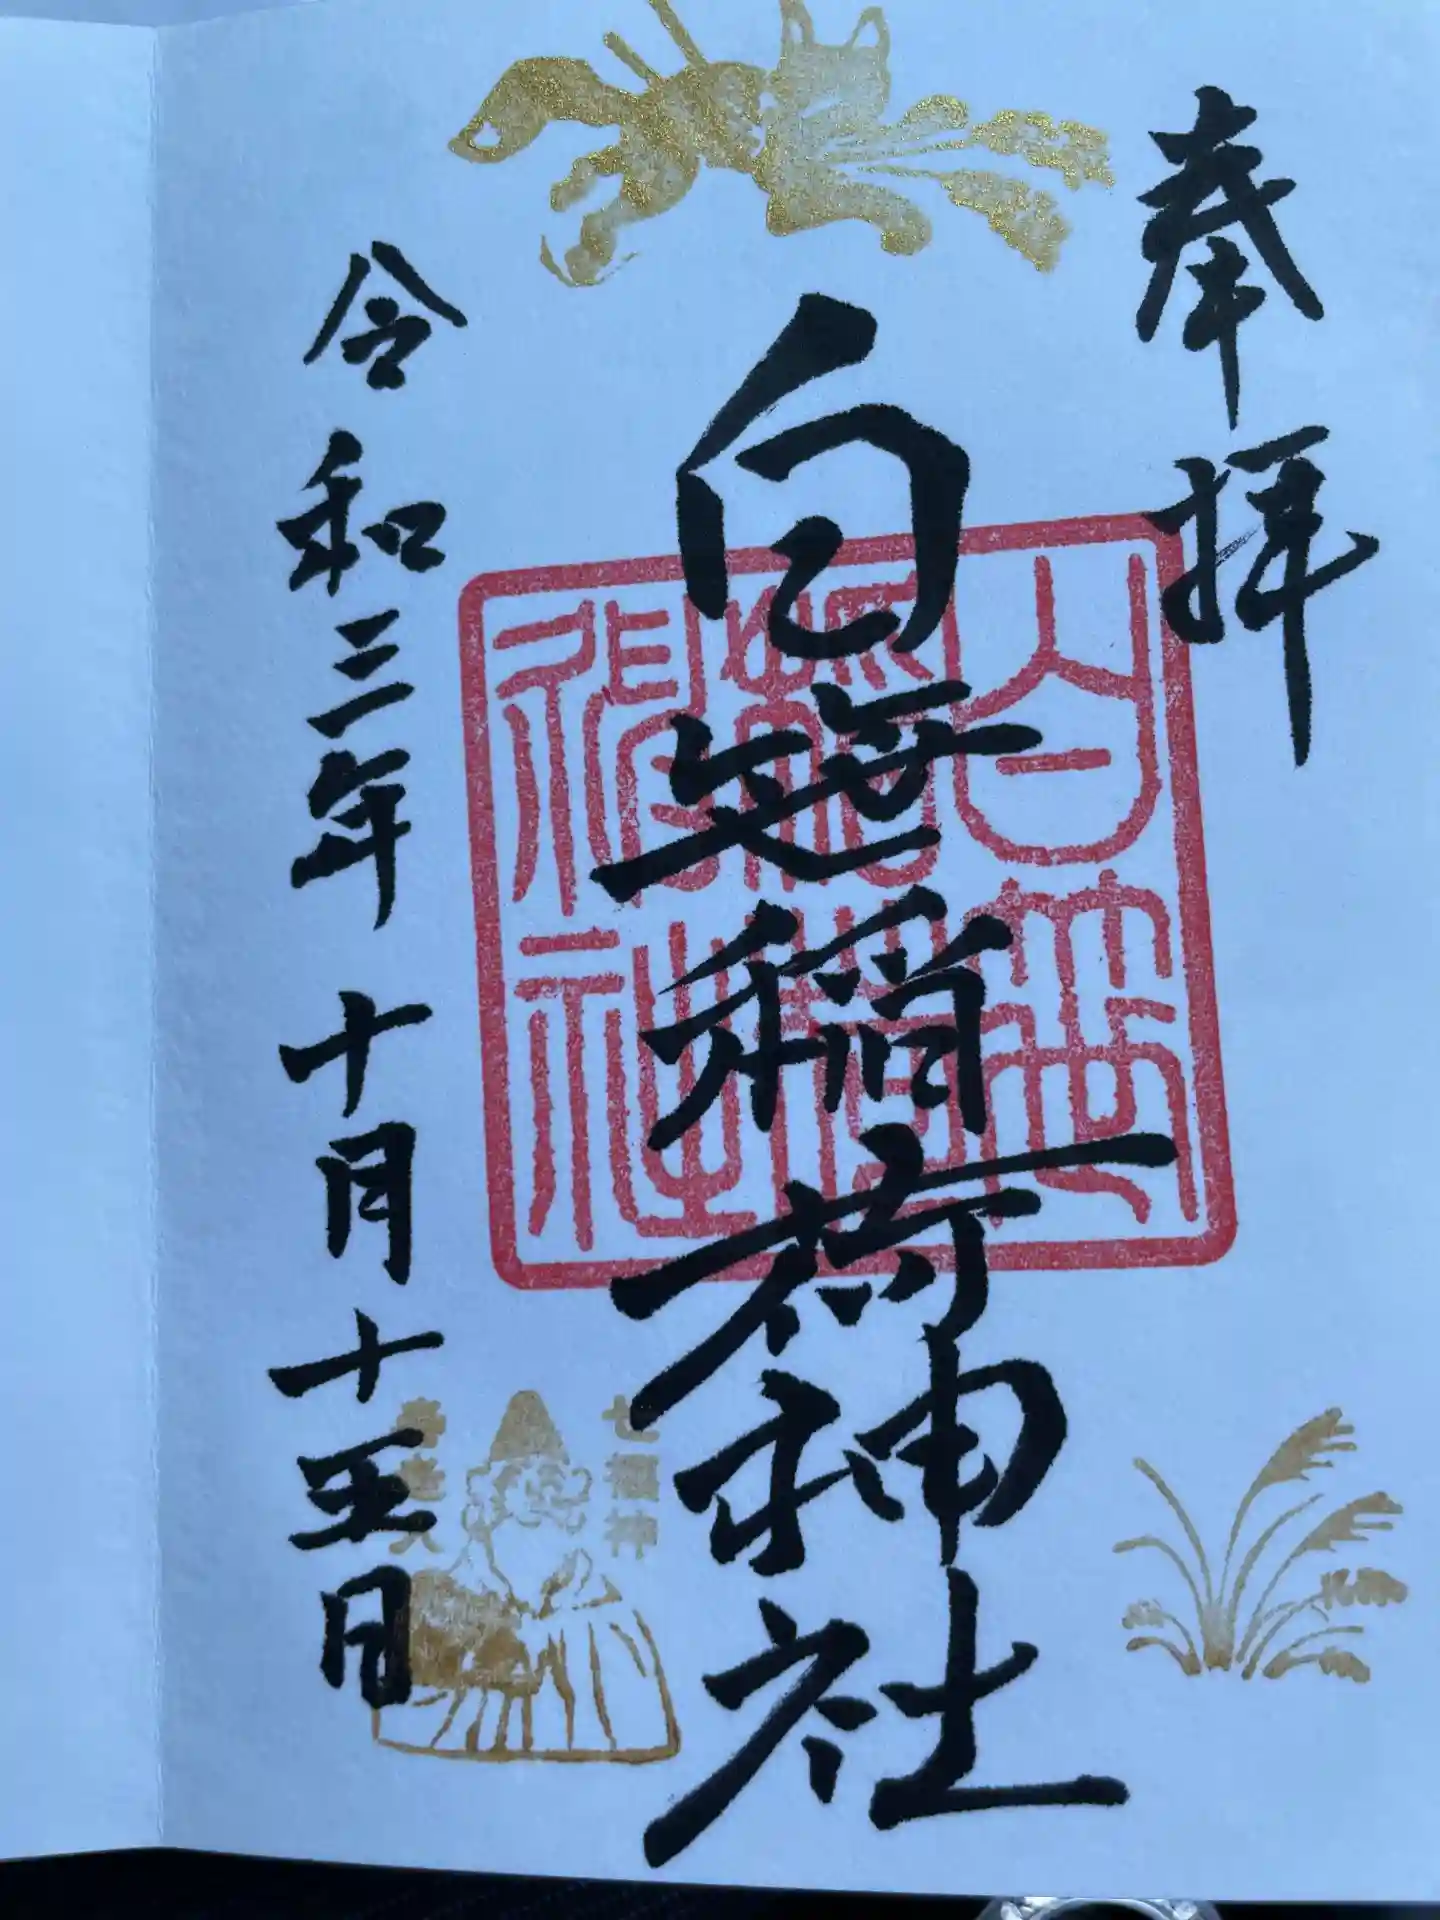 奉拝
白笹稲荷神社
白笹
稲荷
神社
令和三年十月十五日
七福神